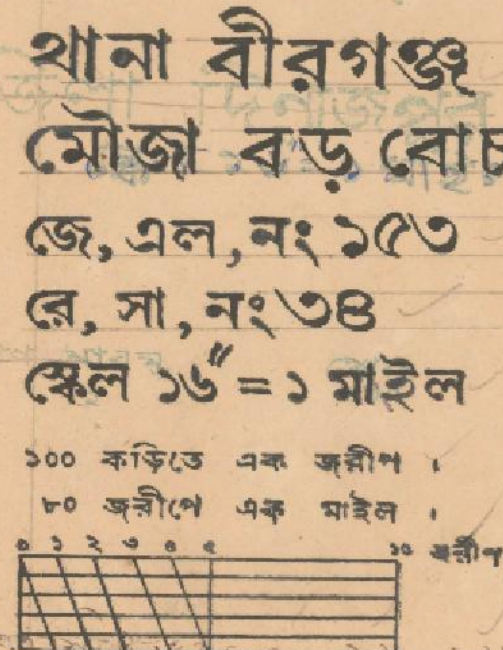 থানা বীরগঞ্জ
মৌজা বড় বোচ
জে, এল, নং ১৫৩
রে, সা, নং ৩৪
স্কেল ১৬" = ১ মাইল
১০০ কড়িতে এক জরীপ ।
৮০ জরীপে এক মাইল ।
০ ১ ২ ৩ ৪ ৫ ১০ জরীপ